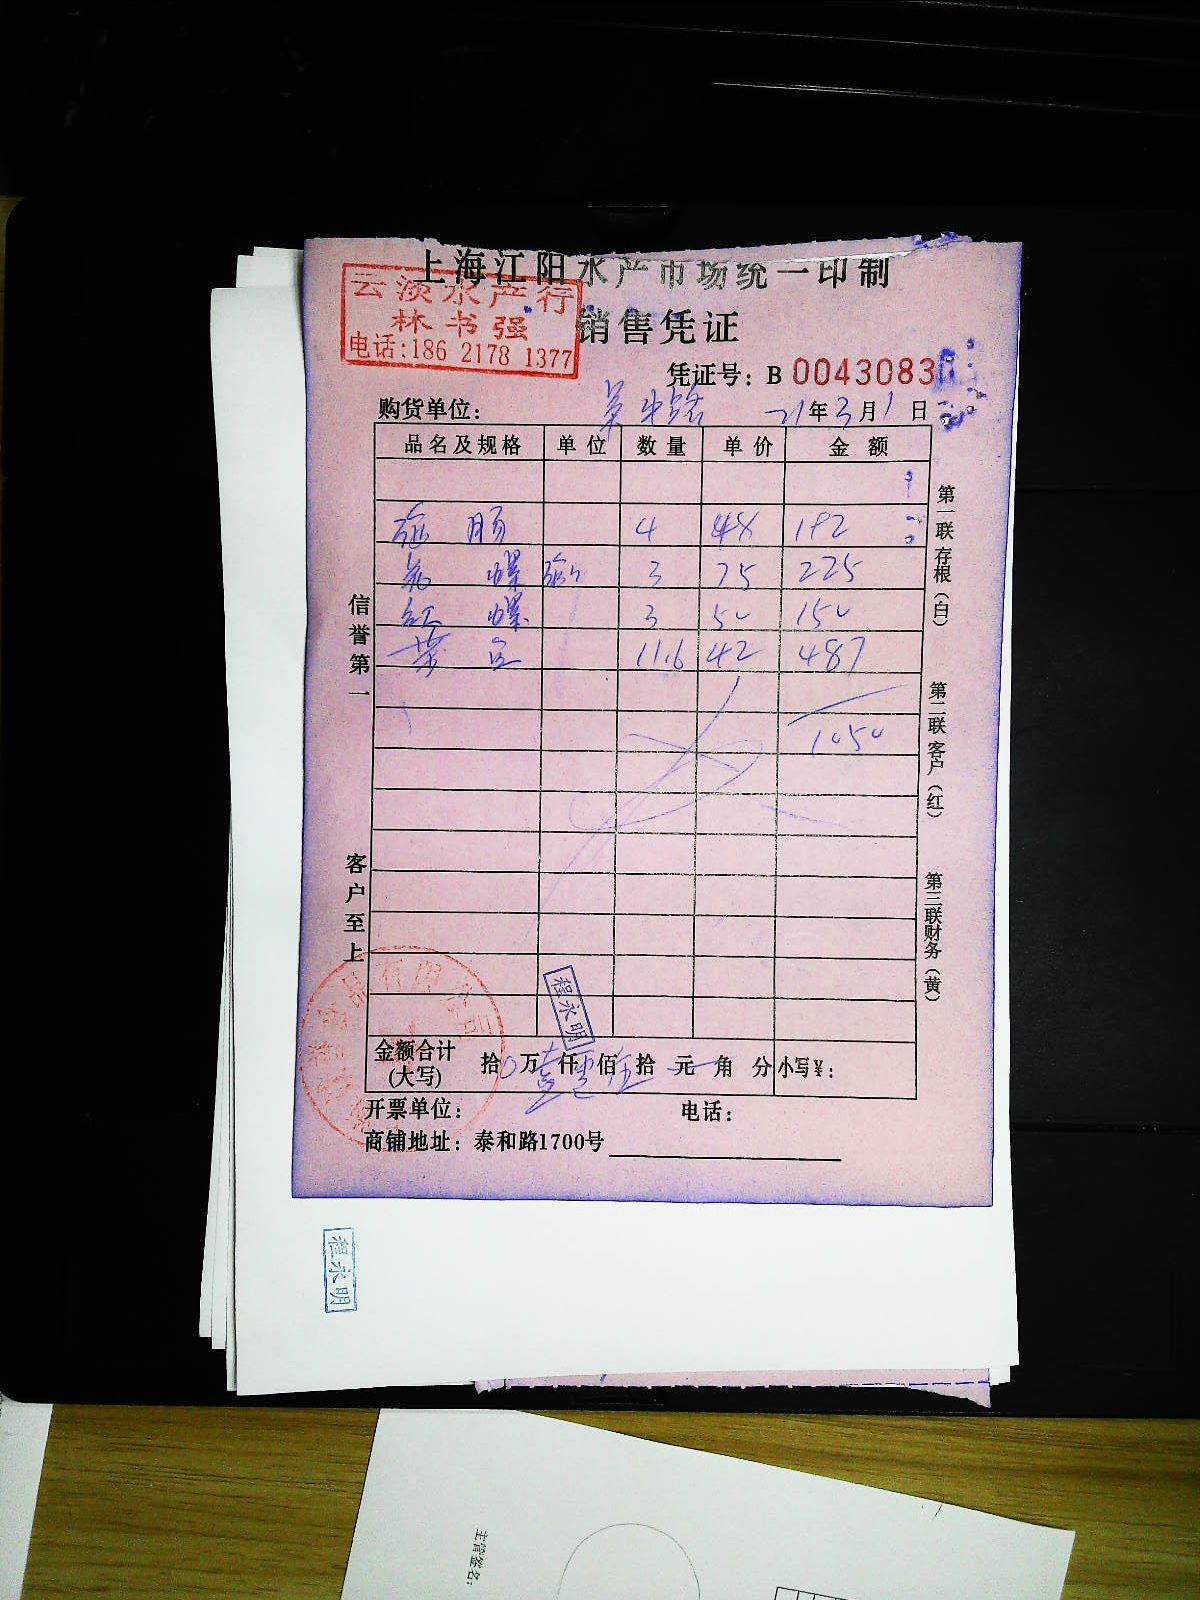 上海江阳水产市场统一印制
云淡水产行
林书强
电话:186 2178 1377
销售凭证
凭证号: B 0043083
购货单位: 21年3月1日
品名及规格 单位 数量 单价 金额
4 48 192
螺 3 75 225
红螺 3 50 150
11.6 42 487
1050
信誉第一
客户至上
第一联存根(白)
第二联客户(红)
第三联财务(黄)
程永明
金额合计(大写) 拾0万壹仟零佰伍拾元角分 小写¥:
开票单位: 电话:
商铺地址: 泰和路1700号
程永明
主管签名: